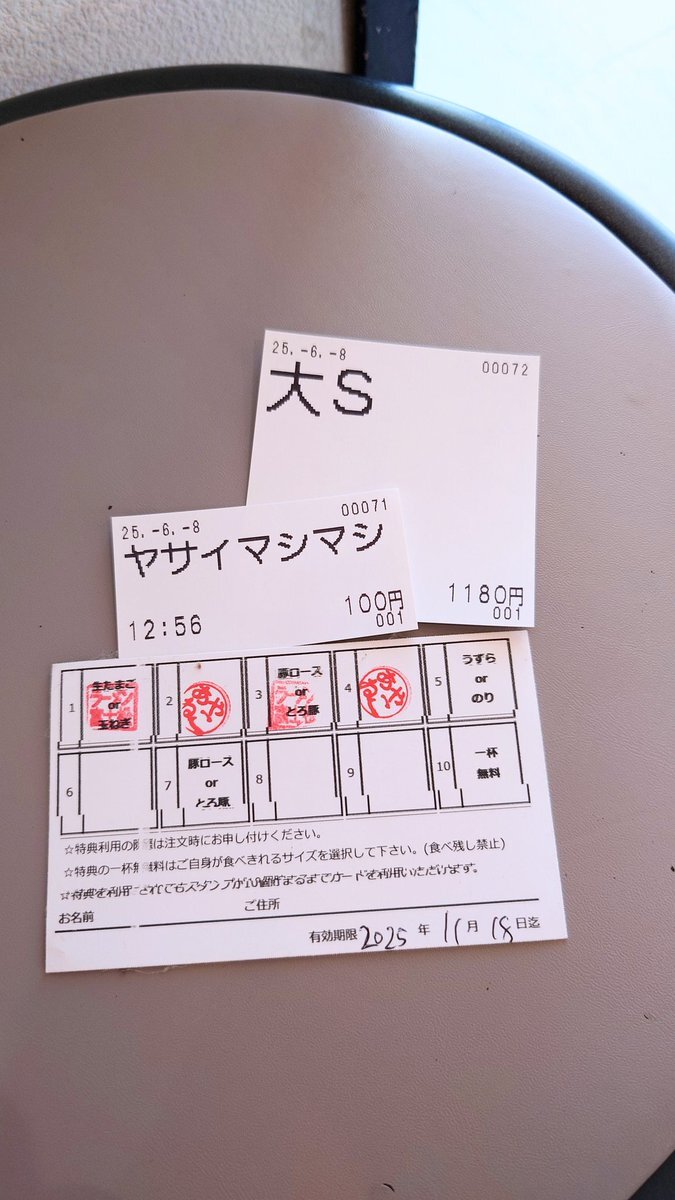 25.-6.-8
00072
大S
1180円
001
25.-6.-8
00071
ヤサイマシマシ
12:56
100円
001
1 生たまご or 玉ねぎ
2
3 豚ロース or とろ豚
4
5 うずら or のり
6
7 豚ロース or とろ豚
8
9
10 一杯 無料
☆特典利用の際は注文時にお申し付けください。
☆特典の一杯無料はご自身が食べきれるサイズを選択して下さい。(食べ残し禁止)
☆特典を利用されてもスタンプが10個貯まるまでカードを利用いただけます。
お名前
ご住所
有効期限 2025 年 11 月 18 日迄